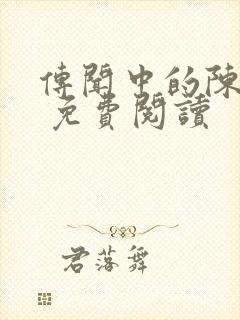 傳聞中的陳
免費閱讀
君落舞